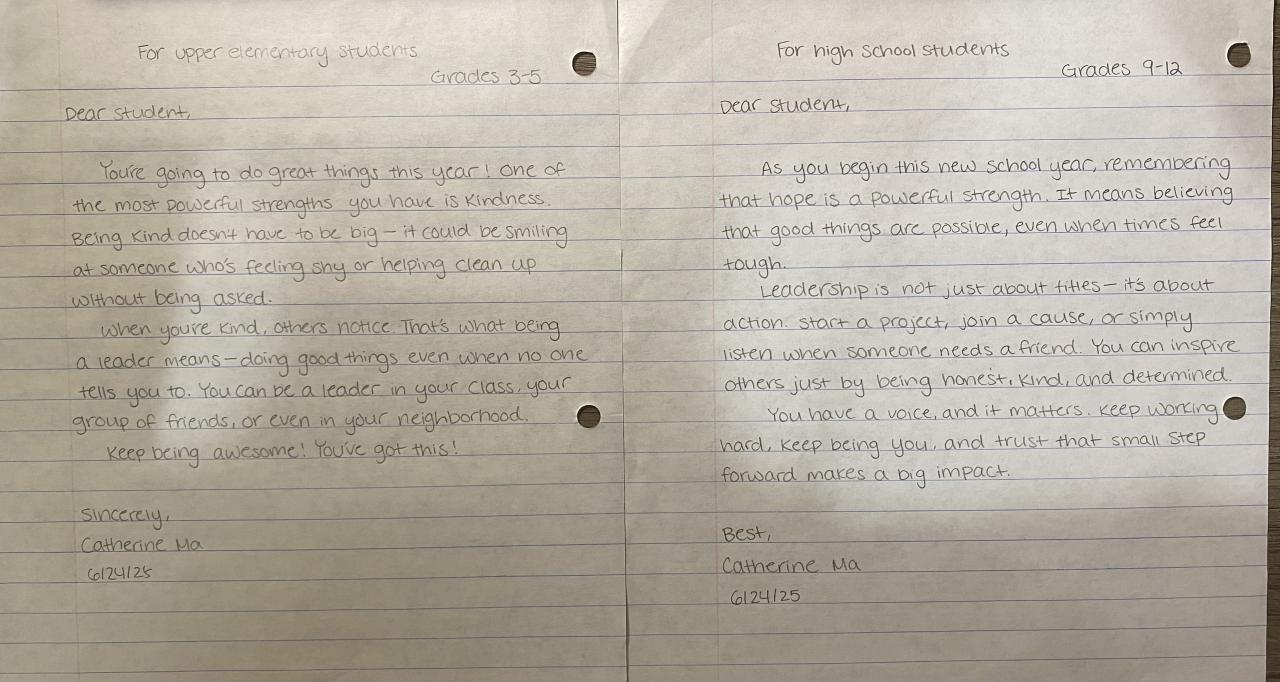 For upper elementary students
Grades 3-5
Dear student,
You're going to do great things this year! One of
the most powerful strengths you have is kindness.
Being kind doesn't have to be big – it could be smiling
at someone who's feeling shy or helping clean up
without being asked.
When you're kind, others notice. That's what being
a leader means – doing good things even when no one
tells you to. You can be a leader in your class, your
group of friends, or even in your neighborhood.
Keep being awesome! You've got this!
Sincerely,
Catherine Ma
6/24/25
For high school students
Grades 9-12
Dear student,
As you begin this new school year, remembering
that hope is a powerful strength. It means believing
that good things are possible, even when times feel
tough.
Leadership is not just about titles – it's about
action. Start a project, join a cause, or simply
listen when someone needs a friend. You can inspire
others just by being honest, kind, and determined.
You have a voice, and it matters. Keep working
hard, keep being you, and trust that small step
forward makes a big impact.
Best,
Catherine Ma
6/24/25